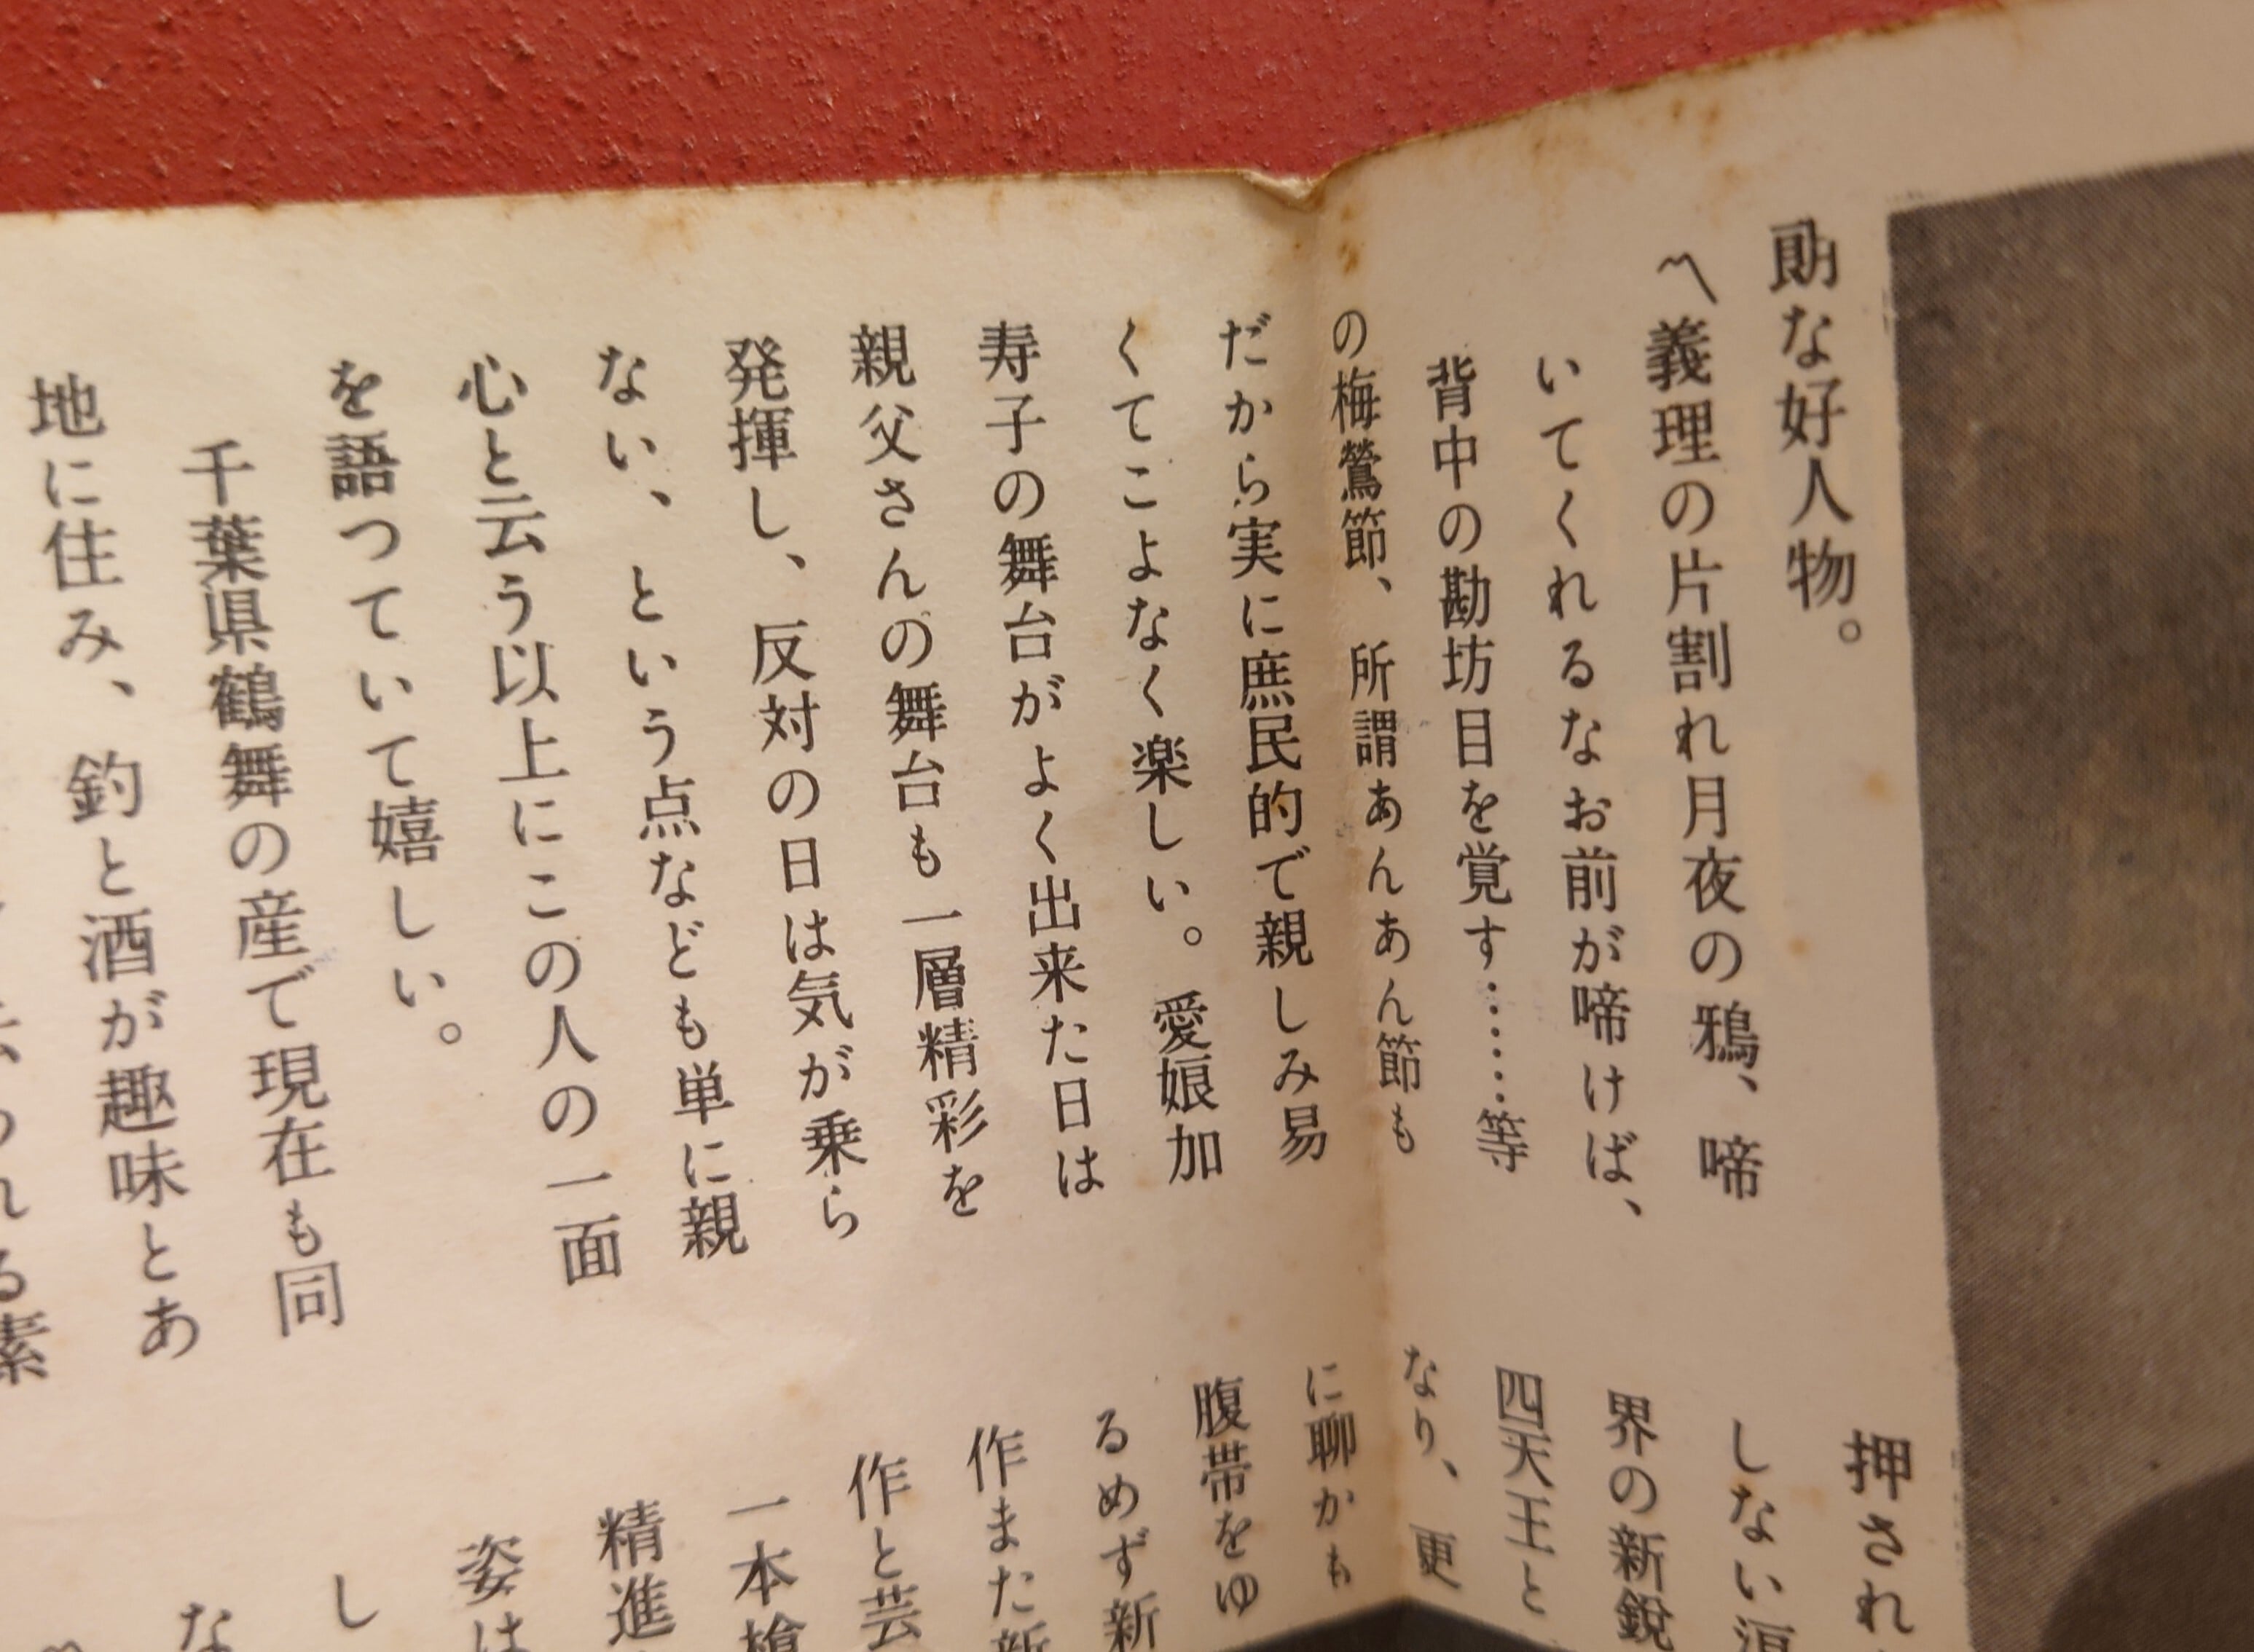 な好人物。
〽義理の片割れ月夜の鴉、啼
いてくれるなお前が啼けば、
背中の勘坊目を覚す……等
の梅鶯節、所謂あんあん節も
だから実に庶民的で親しみ易
くてこよなく楽しい。愛娘加
寿子の舞台がよく出来た日は
親父さんの舞台も一層精彩を
発揮し、反対の日は気が乗ら
ない、という点なども単に親
心と云う以上にこの人の一面
を語つていて嬉しい。
千葉県鶴舞の産で現在も同
地に住み、釣と酒が趣味とあ
れる素
押され
しない
界の新鋭
四天王と
なり、更
に聊かも
腹帯をゆ
るめず新
作また新
作と芸
一本槍
精進
姿は
し
な